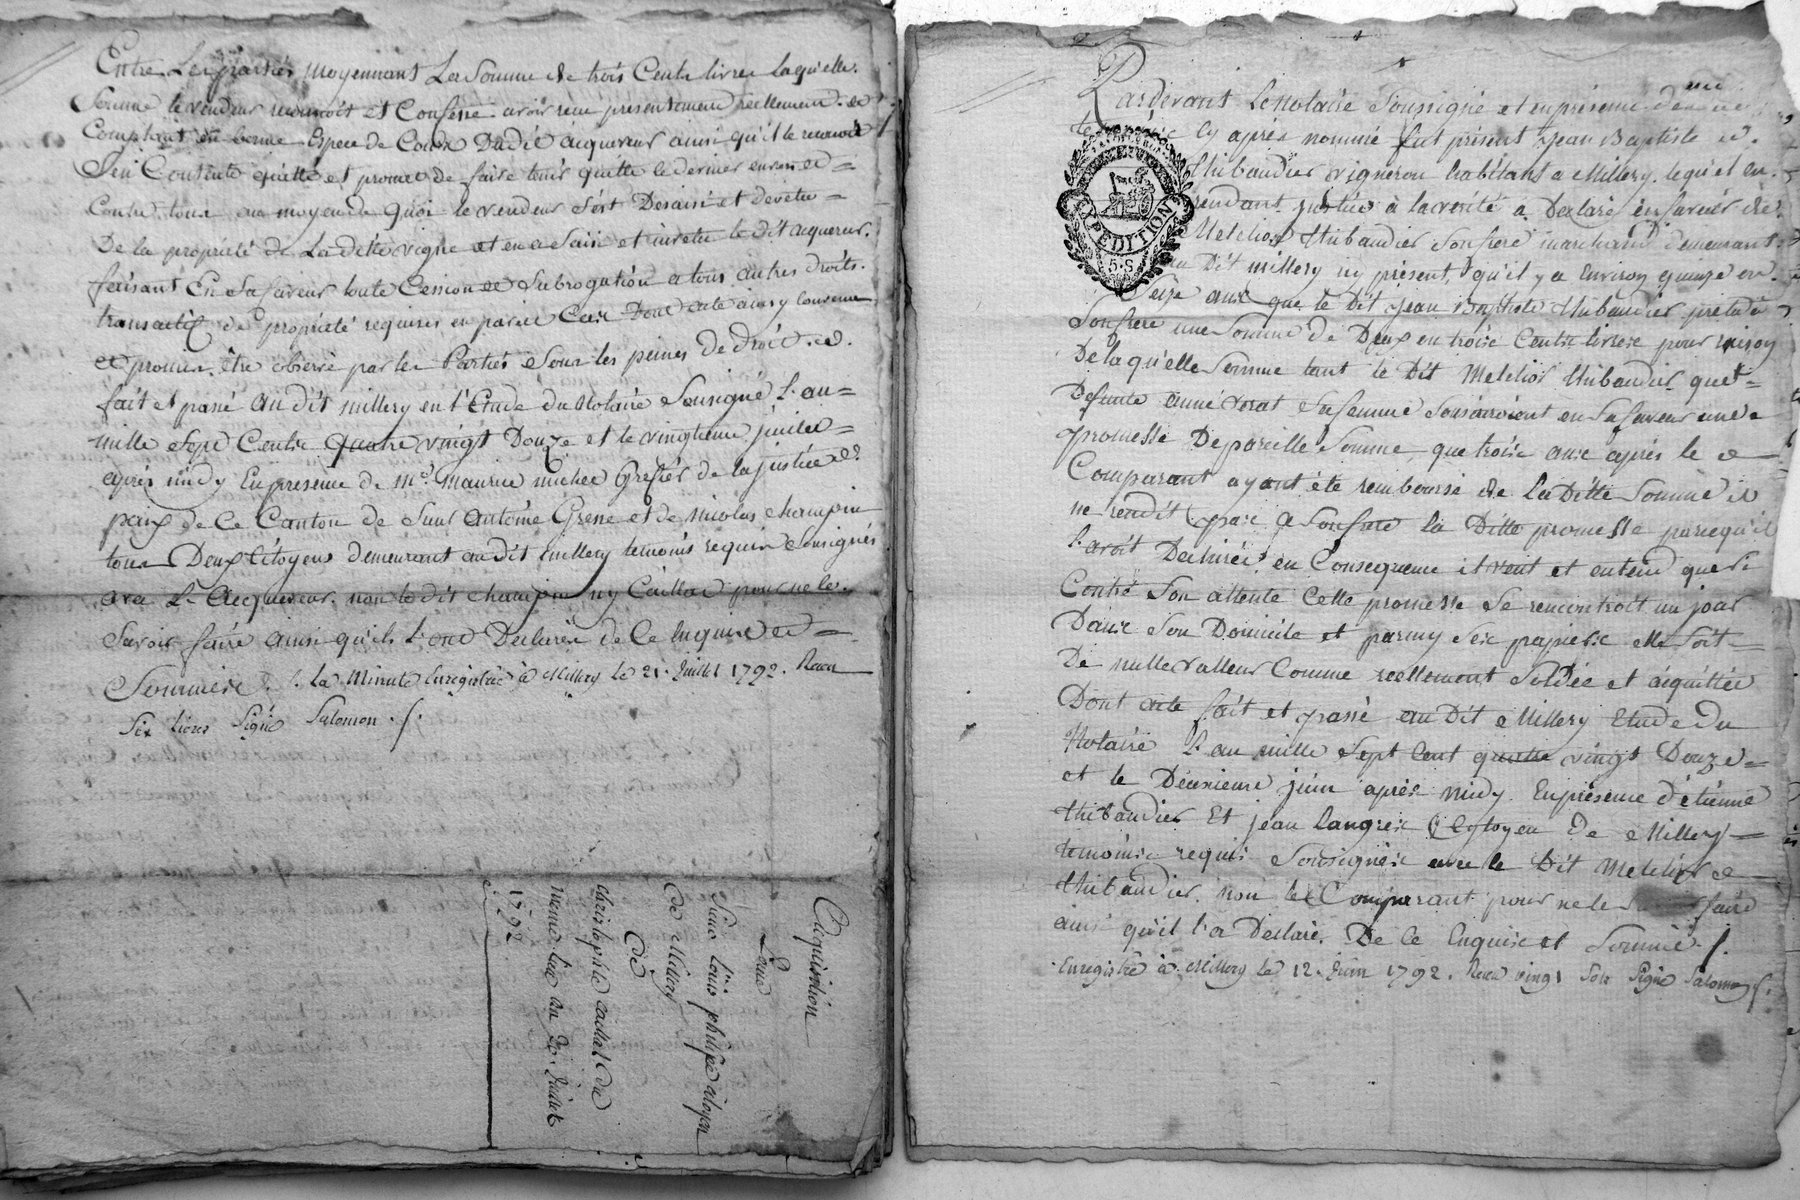 Entre Les parties moyennant La Somme de trois Cents livres laquelle
Somme le vendeur reconnoit et Confesse avoir reçu presentement réellement et
Comptant en bonne Espece de Cours Dudit acquereur ainsi qu'il le reconoit
S'en Contente quitte et promet de faire tenir quitte le dernier envers et
Contre tous au moyen de quoi le vendeur S'est Desaisi et devetu
De la propriété de La dette vigne et en a Saisi et invetu le dit acquereur
faisant En Sa faveur toute Cession et Subrogation a tous autres droits
translatifs de propriété requises en pareil Cas Dont acte ainsy convenu
et promis être observé par les Parties Sous les peines de droit et
fait et passé au dit millery en l'Etude du Notaire Sousigné L'an
mille Sept Cents Quatre vingt Douze et le vingtieme juillet
après midy En presence de Me Maurice michel Greffier de la justice de
paix de Ce Canton de Sieur antoine Grene et de nicolas champin
tous Deux Citoyens demeurant au dit millery temoins requis Sousignés
avec L'acquereur non le dit champin ny Caillat pour ne le
Savoir faire ainsi qu'ils L'ont Declarés de Ce Enquis et
Sommés. La Minute Enregistrée à Millery le 21 Juillet 1792. Recu
Six livres Signé Salomon
Acquisition
Pour
Sieur Louis philipe citoyen
de Millery
De
christophe caillat du
meme lieu du 20 Juillet
1792
Pardevant Le Notaire Soussigné et en présence des
cy après nommé fut présent Jean Baptiste
thibaudier vigneron habitant a Millery, lequel en
rendant justice à la verité a Declaré en faveur de
Melchior thibaudier Son frere marchand demeurant
au Dit millery ny présent, qu'il y a Environ quinze ou
Seize ans que le Dit Jean Baptiste thibaudier preta à
Son frere une Somme de Deux ou trois Cents livres pour raison
De laquelle Somme tant le Dit Melchior thibaudier que
Defunte anné Sa femme Souscrivirent en Sa faveur une
promesse De pareille Somme, que trois ans après le
Comparant ayant été remboursé de La Ditte Somme il
ne rendit pas a Son frere la Ditte promesse parcequ'il
L'avoit Dechirée, en Consequence il veut et entend que Si
Contre Son attente Cette promesse Se rencontroit un jour
Dans Son Domicile et parmy Ses papiers elle Soit
De nulle valleur Comme reellement Soldée et aiquittée
Dont acte fait et passé au Dit Millery Etude du
Notaire L'an mille Sept Cent quatre vingt Douze
et le Deuxieme juin après midy. En présence d'étienne
thibaudier Et jean Langres Cytoyen De Millery
temoins requis Sousignés avec le Dit Melchior
thibaudier. non le Comparant pour ne le Savoir faire
ainsi qu'il l'a Declaré. De Ce Enquis et Sommé.
Enregistré à Millery le 12 Juin 1792. Recu vingt Sols Signé Salomon
EXPEDITION
5.S